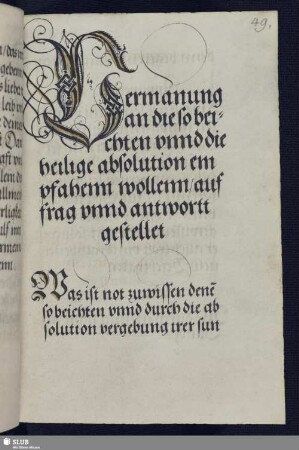 49.
Vermanung
an die so bei-
chten vnnd die
heilige absolution em
pfahenn wollenn / auf
frag vnnd antwortt
gestellet
Was ist not zuwissen denē
so beichten vnnd durch die ab
solution vergebung irer sun
SLUB
Wir führen Wissen.